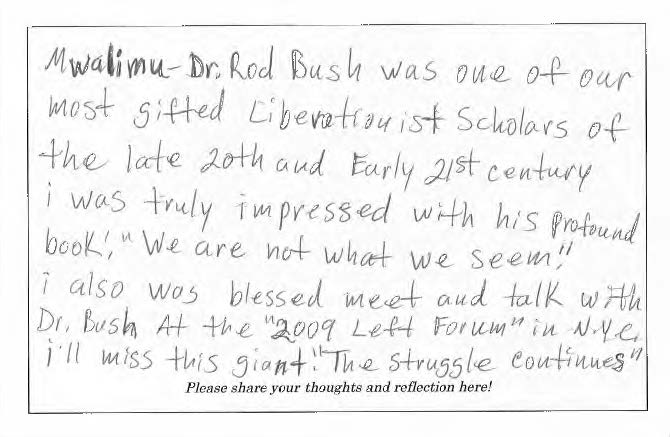 Mwalimu - Dr. Rod Bush was one of our
most gifted Liberationist Scholars of
the late 20th and Early 21st century
i was truly impressed with his profound
book, "We are not what we seem."
i also was blessed meet and talk with
Dr. Bush At the "2009 Left Forum" in N.Y.C.
i'll miss this giant. "The struggle continues"
Please share your thoughts and reflection here!